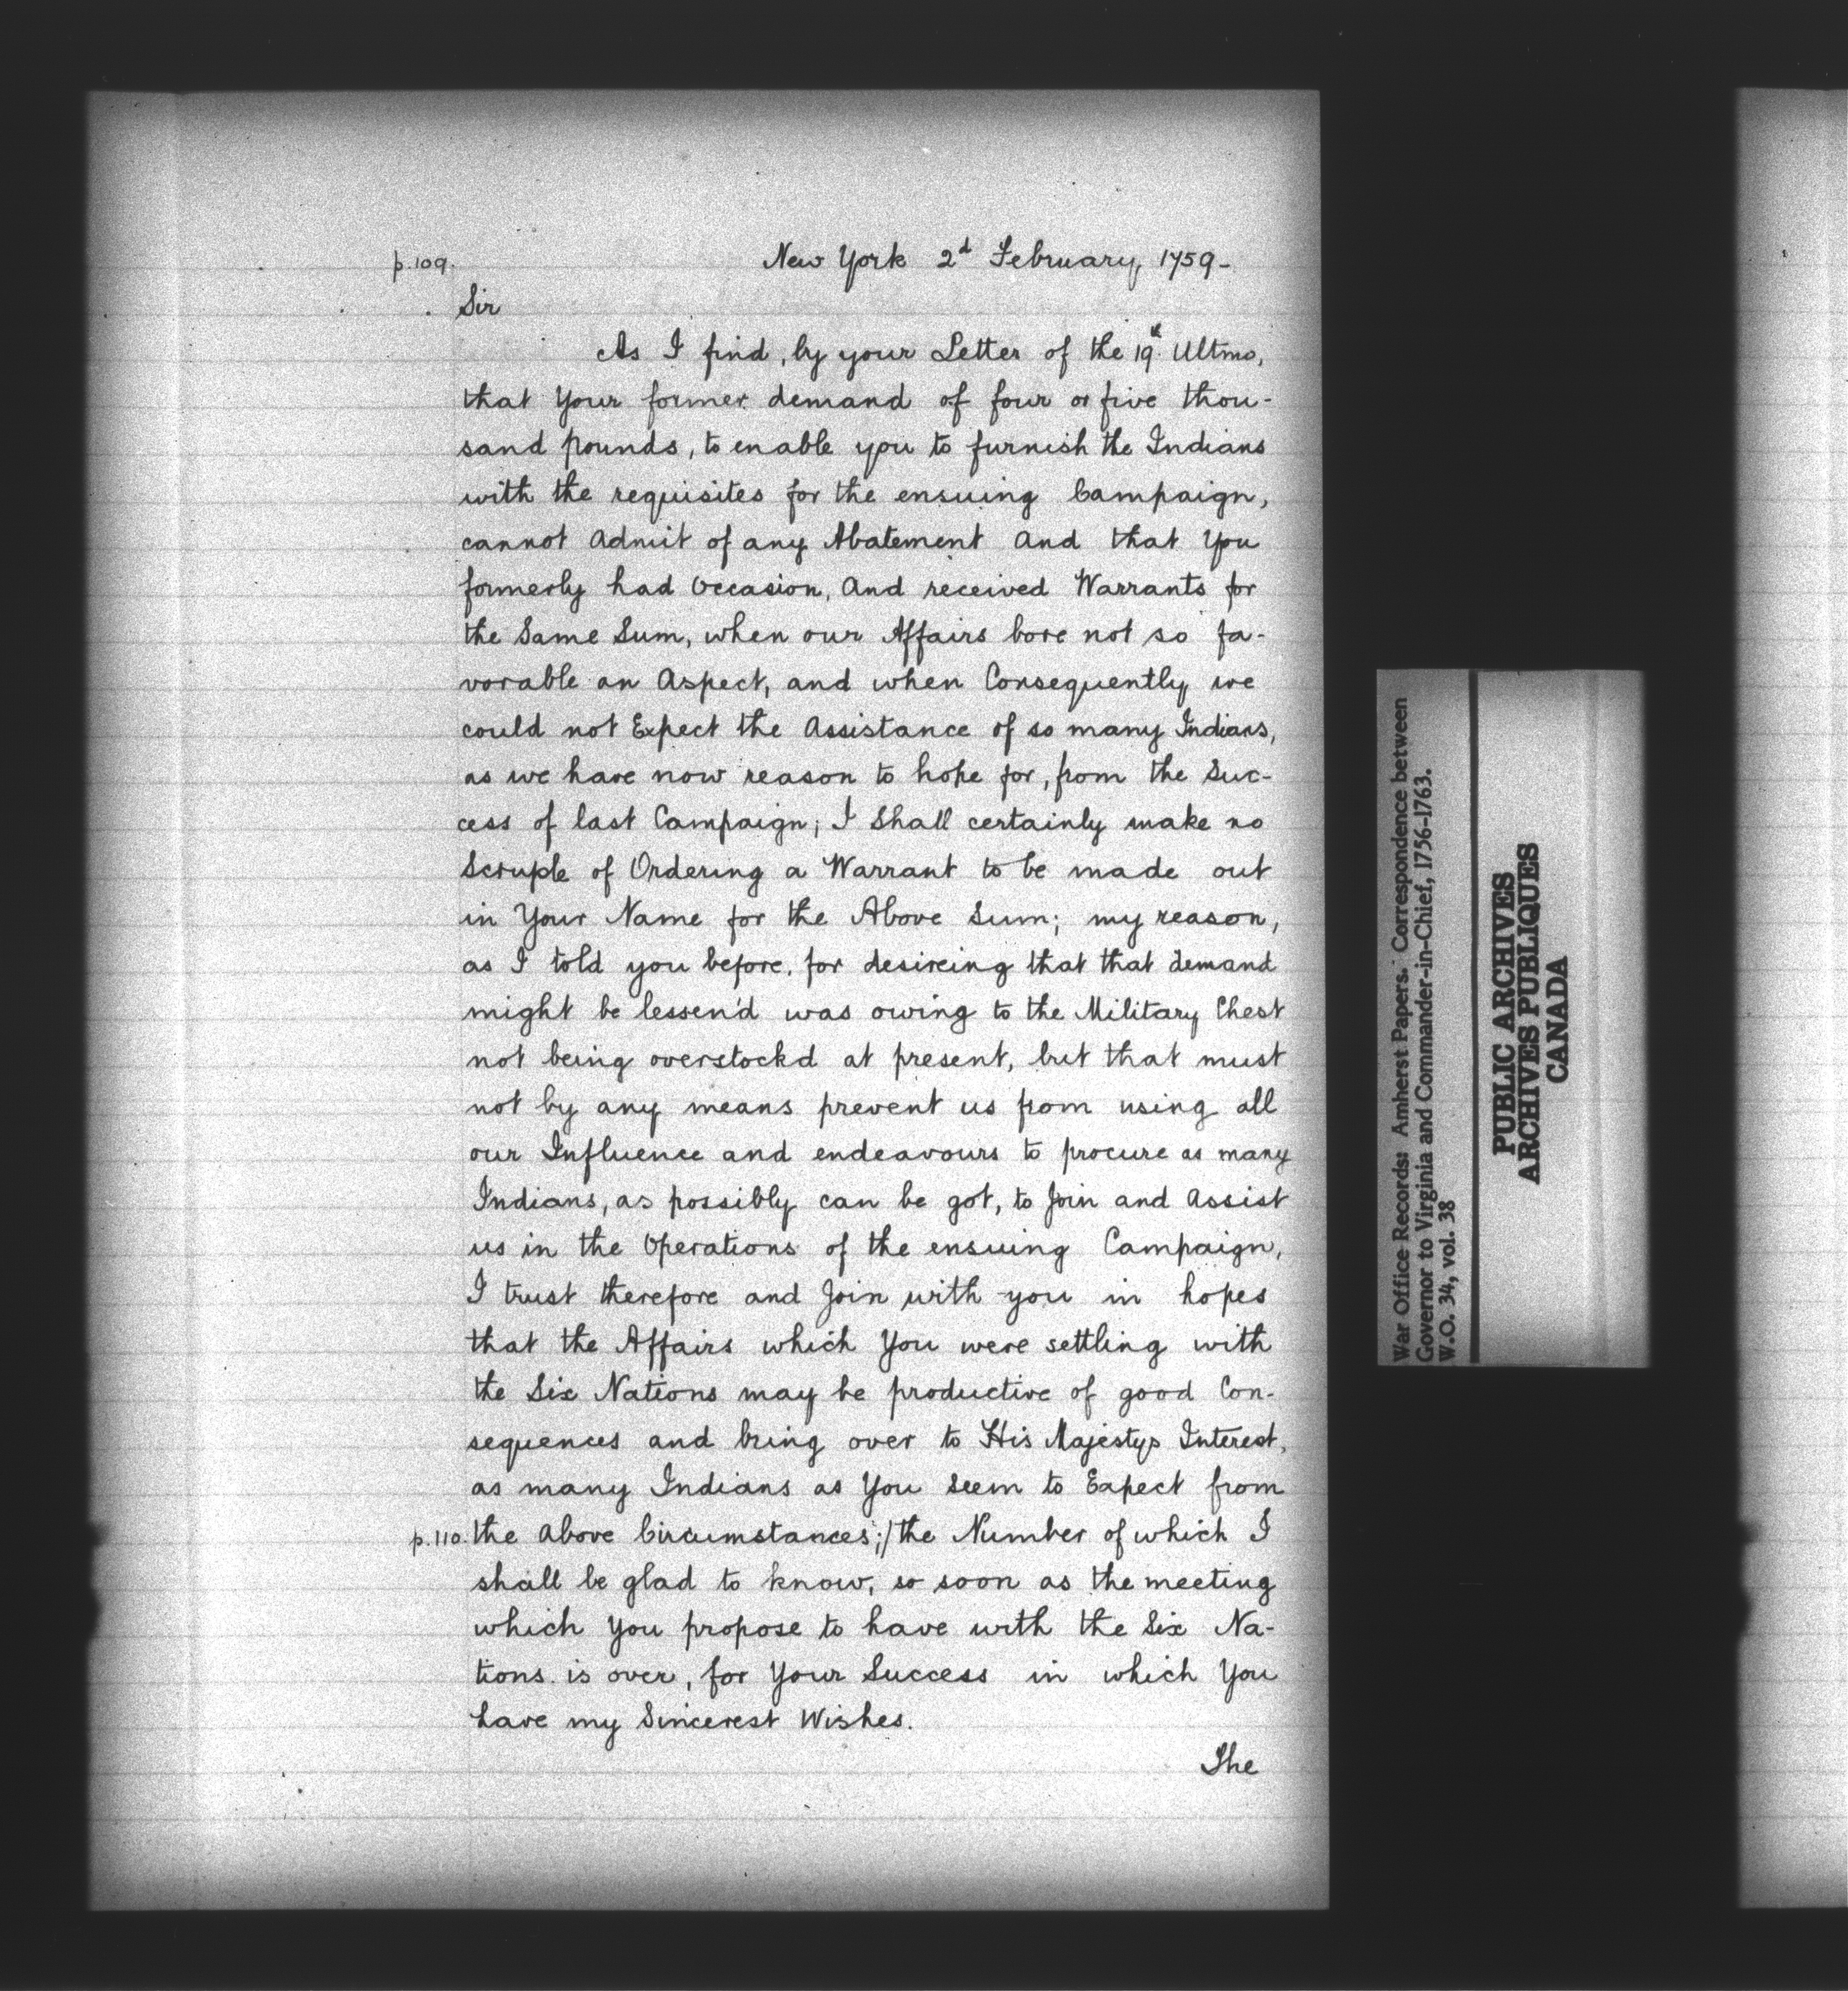 p.109.
New York 2d February, 1759-
Sir
As I find, by your Letter of the 19th Ultmo,
that Your former demand of four or five thou-
sand pounds, to enable you to furnish the Indians
with the requisites for the ensuing Campaign,
cannot Admit of any Abatement And that You
formerly had Occasion, And received Warrants for
the Same Sum, when our Affairs bore not so fa-
vorable an Aspect, and when Consequently we
could not Expect the Assistance of so many Indians,
as we have now reason to hope for, from the Suc-
cess of last Campaign; I Shall certainly make no
Scruple of Ordering a Warrant to be made out
in Your Name for the Above Sum; my reason,
as I told you before, for desireing that that demand
might be lessen'd was owing to the Military Chest
not being overstockd at present, but that must
not by any means prevent us from using all
our Influence and endeavours to procure as many
Indians, as possibly can be got, to Join and Assist
us in the Operations of the ensuing Campaign,
I trust therefore and Join with you in hopes
that the Affairs which You were settling with
the Six Nations may be productive of good Con-
sequences and bring over to His Majestys Interest,
as many Indians as You Seem to Expect from
p.110. the Above Circumstances;/ the Number of which I
shall be glad to know, so soon as the meeting
which You propose to have with the Six Na-
tions is over, for Your Success in which You
have my Sincerest Wishes.
The
War Office Records: Amherst Papers. Correspondence between
Governor to Virginia and Commander-in-Chief, 1756-1763.
W.O. 34, vol. 38
PUBLIC ARCHIVES
ARCHIVES PUBLIQUES
CANADA